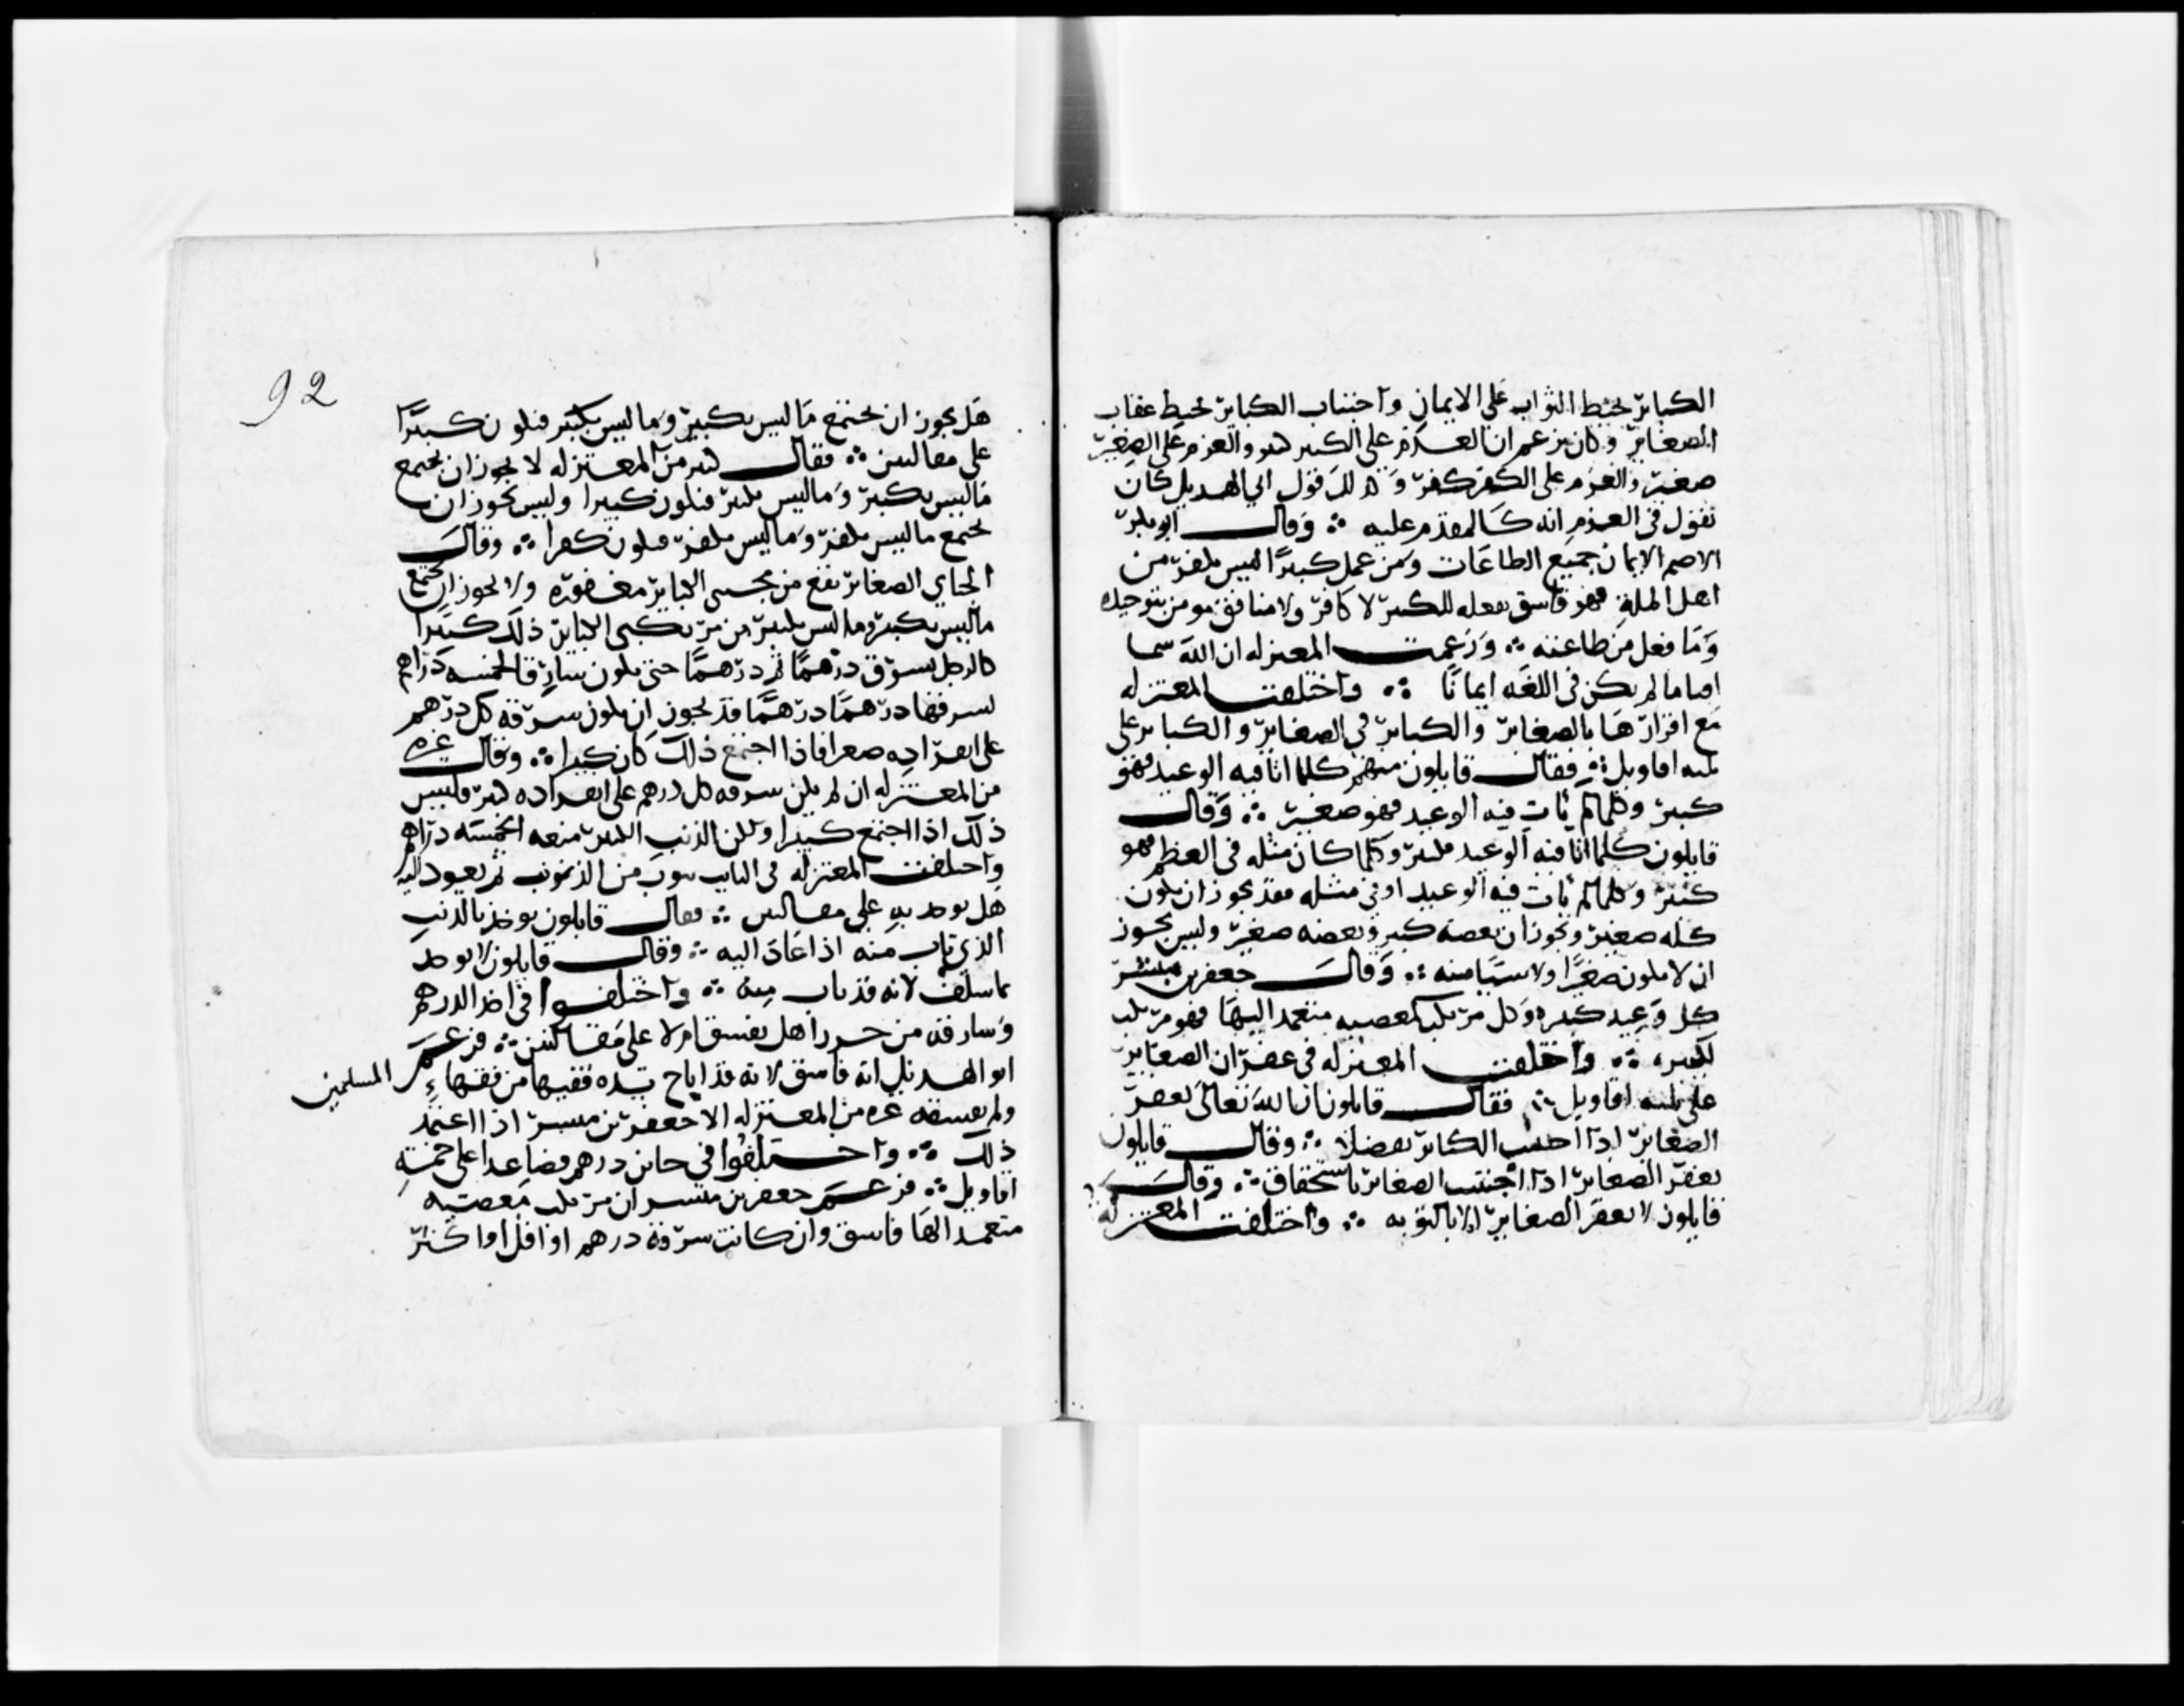 الكبائر يحبط الثواب على الايمان واجتناب الكبائر يحبط عقاب
الصغائر وكان يزعم ان العزم على الكبير كبير والعزم على الصغير
صغير والعزم على الكفر كفر وكذلك قول ابي الهذيل كان
يقول في العزم انه كالمقدم عليه ∴ وقال ابو بكر
الاصم الايمان جميع الطاعات ومن عمل كبيرا ليس بكفر من
اهل الملة فهو فاسق بفعله للكبير لا كافر ولا منافق مومن بتوحيده
وما فعل من طاعته ∴ وزعمت المعتزله ان الله سما
ايمانا ما لم يكن في اللغه ايمانا ∴ واختلفت المعتزله
مع اقرارها بالصغائر والكبائر في الصغائر والكبائر على
ثلثه اقاويل ∴ فقال قايلون منهم كلما اتا فيه الوعيد فهو
كبير وكلما لم يات فيه الوعيد فهو صغير ∴ وقال
قايلون كلما اتا فيه الوعيد فكبير وكلما كان مثله في العظم فهو
كبير وكلما لم يات فيه الوعيد او في مثله فقد يجوز ان يكون
كله صغير ويجوز ان بعضه كبير وبعضه صغير وليس يجوز
ان لا يكون صغيرا ولا سيا منه ∴ وقال جعفر بن مبشر
كل وعيد كبير وكل مرتكب لمعصيه متعمدا اليها فهو مرتكب
لكبيره ∴ واختلفت المعتزله في غفران الصغائر
على ثلثه اقاويل ∴ فقال قايلون ان الله تعالى يغفر
الصغائر اذا اجتنبت الكبائر تفضلا ∴ وقال قايلون
يغفر الصغائر اذا اجتنب الصغائر باستحقاق ∴ وقال
قايلون لا يغفر الصغائر الا بالتوبه ∴ واختلفت المعتزله
92
هل يجوز ان يجتمع ما ليس بكبير وما ليس بكبير فيكون كبيرا
على مقالتين ∴ فقال كثير من المعتزله لا يجوز ان يجتمع
ما ليس بكبير وما ليس بكبير فيكون كبيرا وليس يجوز ان
يجتمع ما ليس بكفر وما ليس بكفر فيكون كفرا ∴ وقال
الجباي الصغائر تقع من مجتنبي الكبائر مغفورة ولا يجوز ان يجتمع
ما ليس بكبير وما ليس بكبير من مرتكبي الكبائر ذلك كبيرا
كالرجل يسرق درهما ثم درهما حتى يكون سارقا لخمسه دراهم
يسرقها درهما درهما فقد يجوز ان يكون سرقه كل درهم
على انفراده صغيرا فاذا اجتمع ذلك كان كبيرا ∴ وقال غيره
من المعتزله ان لم يكن سرقه كل درهم على انفراده كبير فليس
ذلك اذا اجتمع كبيرا ولكن الذنب الكبير منعه الخمسه دراهم
واختلفت المعتزله في التايب يتوب من الذنوب ثم يعود اليه
هل يوخذ به على مقالتين ∴ فقال قايلون يوخذ بالذنب
الذي تاب منه اذا عاد اليه ∴ وقال قايلون لا يوخذ
بما سلف لانه قد تاب منه ∴ واختلفوا في اخذ الدرهم
وسارقه من حرز اهل يفسق ام لا على مقالتين ∴ فزعم
ابو الهذيل انه فاسق لانه قد اباح يده فقيها من فقهاء المسلمين
ولم يفسقه غيره من المعتزله الا جعفر بن مبشر اذا اعتمد
ذلك ∴ واختلفوا في خاين درهم فصاعدا على خمسة
اقاويل ∴ فزعم جعفر بن مبشر ان مرتكب معصيه
متعمدا لها فاسق وان كانت سرقة درهم او اقل او اكثر